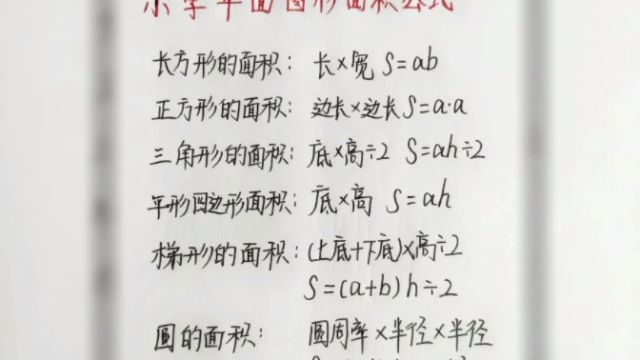 小学平面图形面积公式
长方形的面积： 长×宽 S=ab
正方形的面积： 边长×边长 S=a·a
三角形的面积： 底×高÷2 S=ah÷2
平形四边形面积： 底×高 S=ah
梯形的面积： (上底+下底)×高÷2
S=(a+b)h÷2
圆的面积： 圆周率×半径×半径